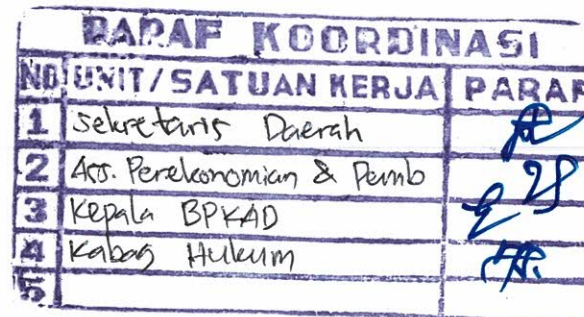 PARAF KOORDINASI
NO UNIT/SATUAN KERJA PARAF
1 Sekretaris Daerah
2 Ass. Perekonomian & Pemb
3 Kepala BPKAD
4 Kabag Hukum
5